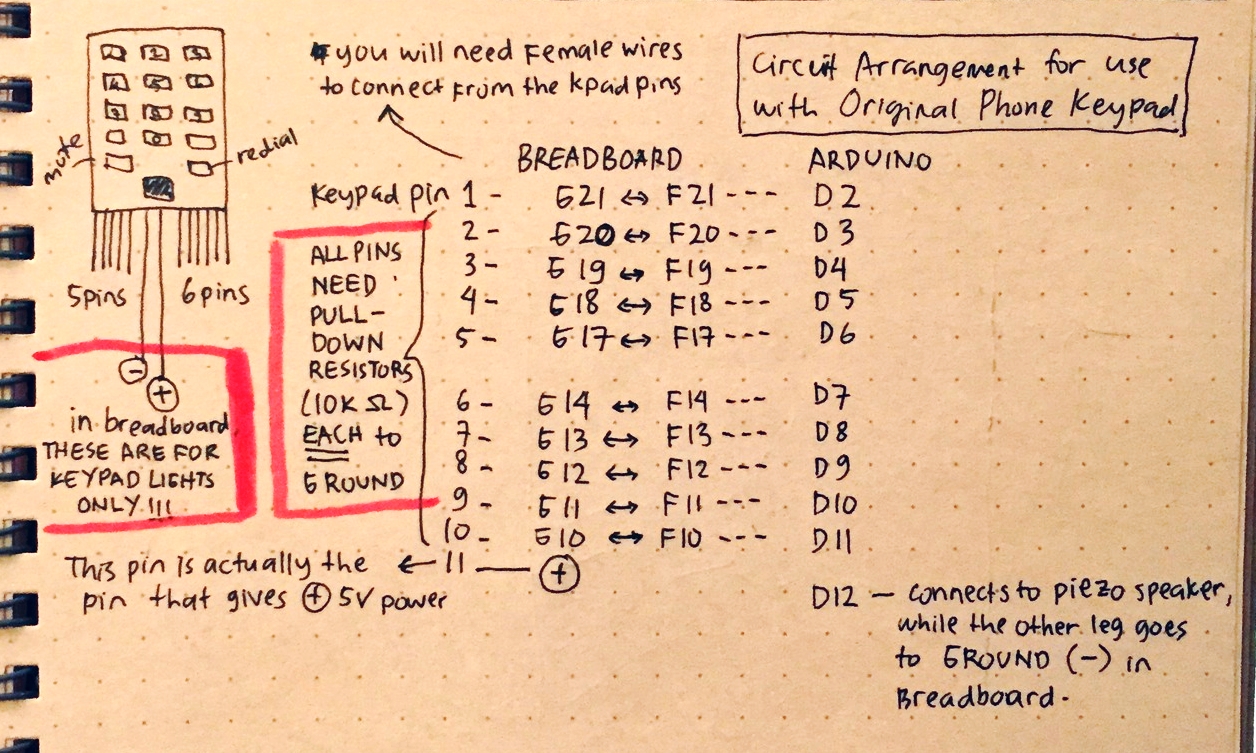 Circuit Arrangement for use
with Original Phone Keypad
* you will need Female wires
to connect from the kpad pins
mute
redial
5pins
6pins
- +
in breadboard
THESE ARE FOR
KEYPAD LIGHTS
ONLY !!!
BREADBOARD ARDUINO
Keypad pin 1 - G21 ↔ F21 --- D2
2 - G20 ↔ F20 --- D3
3 - G19 ↔ F19 --- D4
4 - G18 ↔ F18 --- D5
5 - G17 ↔ F17 --- D6
6 - G14 ↔ F14 --- D7
7 - G13 ↔ F13 --- D8
8 - G12 ↔ F12 --- D9
9 - G11 ↔ F11 --- D10
10 - G10 ↔ F10 --- D11
ALL PINS
NEED
PULL-
DOWN
RESISTORS
(10K Ω)
EACH to
GROUND
This pin is actually the ← 11 — +
pin that gives + 5V power
D12 — connects to piezo speaker,
while the other leg goes
to GROUND (-) in
Breadboard.